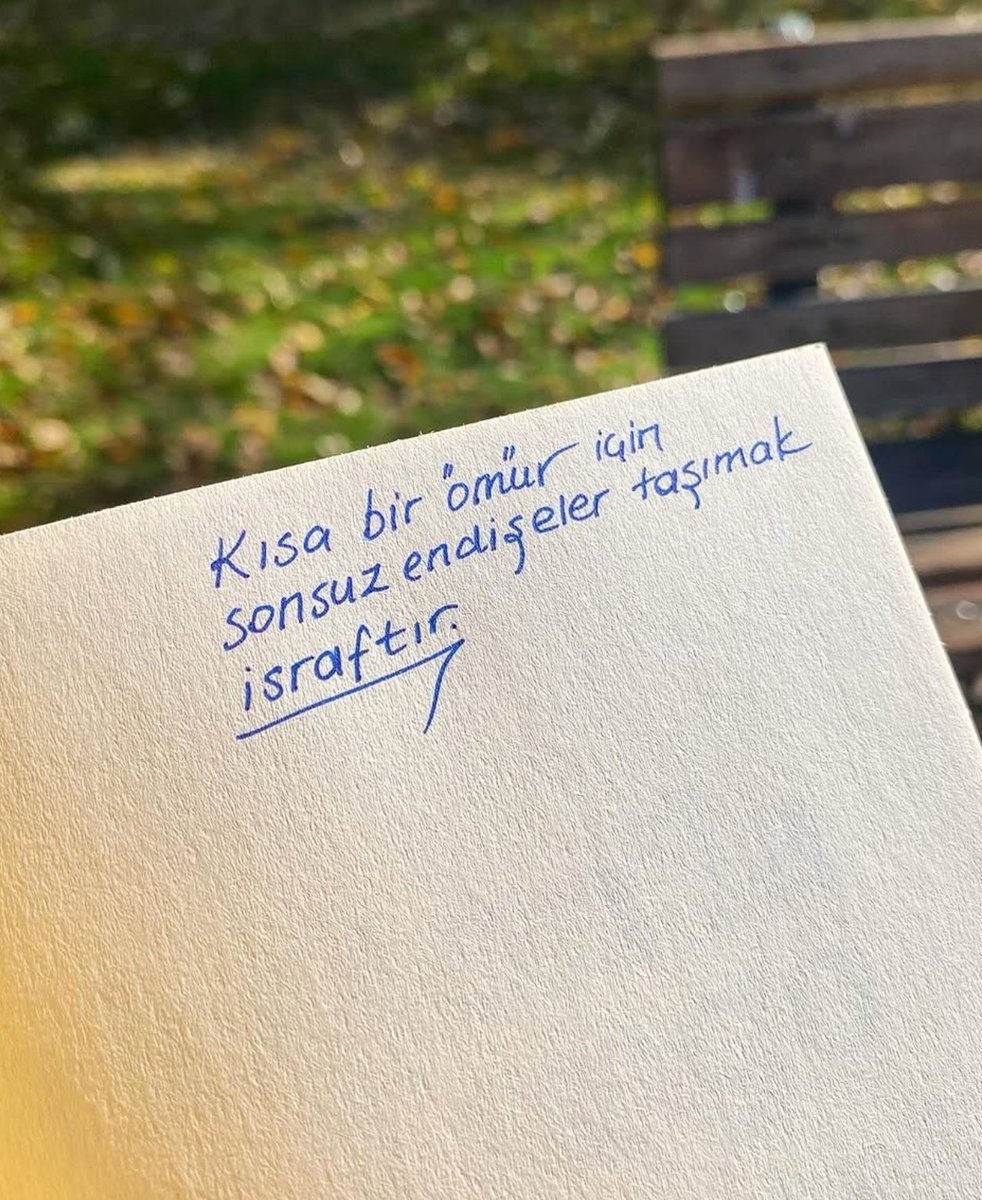 Kısa bir ömür için
sonsuz endişeler taşımak
israftır.